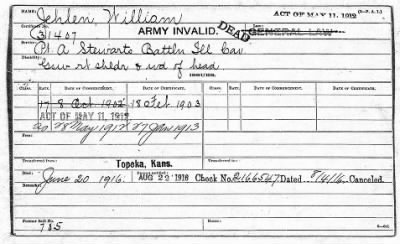 NAME: Jehden, William ACT OF MAY 11, 1912 (3-P. A.)
ARMY INVALID. DEAD GENERAL LAW
31407
Service:
Pt. A Stewarts Battln Ill Cav
Disability:
Gsw rt shldr & wd of head
CLASS. RATE. DATE OF COMMENCEMENT. DATE OF CERTIFICATE. CLASS. RATE. DATE OF COMMENCEMENT. DATE OF CERTIFICATE.
17 8 Oct 1902 18 Feb 1903
ACT OF MAY 11, 1912
28 May 1912 27 Jan 1913
Transferred from Transferred to
Topeka, Kans.
Died:
June 20 1916. AUG 22 1916 Check No. 2166547 Dated 8/4/16 Canceled.
Remarks:
Former Roll No.
785